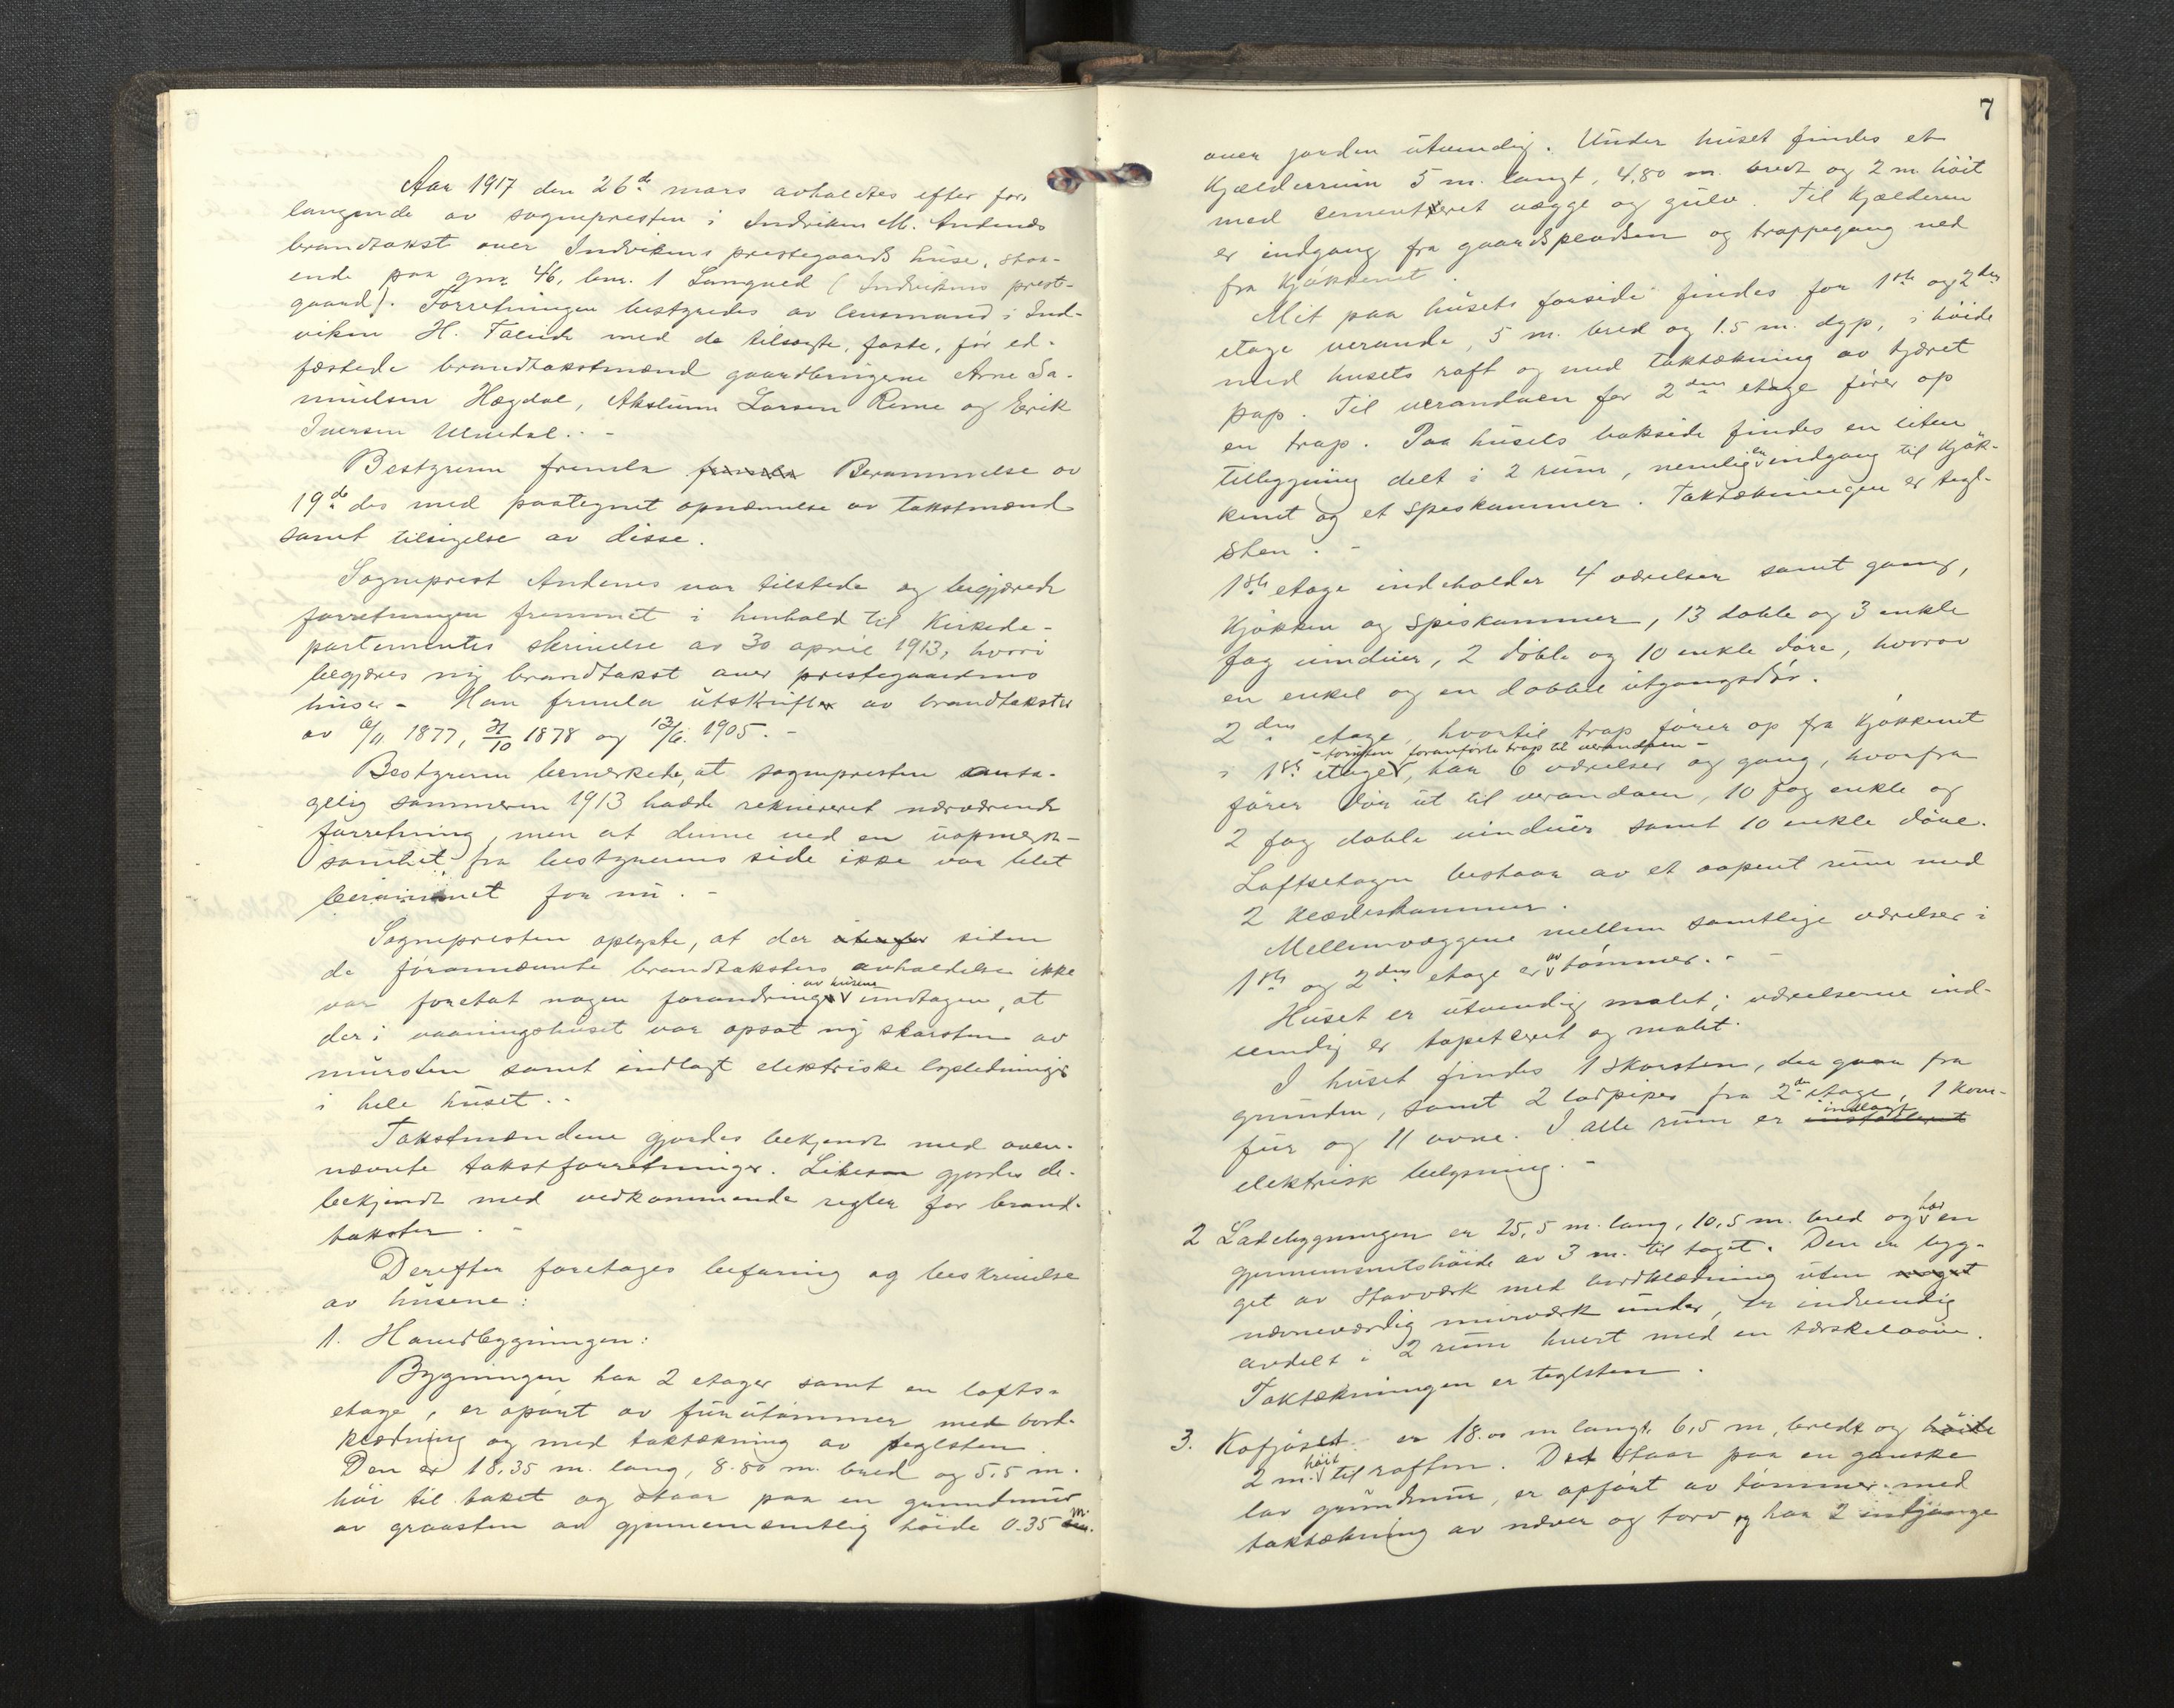 Aar 1917 den 26de mars avholdtes efter for-
langende av sognepresten i Indviken M. Andenæs
brandtakst over Indvikens prestegaards huse, staa-
ende paa gnr. 46, bnr. 1 (Indvikens prest-
gaard). Forretningen bestyredes av lensmand i Ind-
viken H. med de tilsagte, faste, før ed-
fæstede brandtakstmænd gaardbrugerne Arne Sa-
muelsen Hægdal, Larsen Reme og Erik
Iversen
Bestyreren fremla Berammelse av
19de ds med paategnet opnævnelse av takstmænd
samt tilsigelse av disse.
Sogneprest Andenes var tilstede og begjærede
forretningen fremmet i henhold til Kirkede-
partementets skrivelse av 30 april 1913, hvori
begjæres ny brandtakst over prestegaardens
huser - Han fremla utskrifter av brandtakster
av 6/11 1877, 21/10 1878 og 13/6 1905. -
Bestyreren bemerkede, at sognepresten anta-
gelig sommeren 1913 hadde rekvireret nærværende
forretning, men at denne ved en uopmerk-
somhet fra bestyrerens side ikke var blet
berammet før nu. -
Sognepresten oplyste, at der siden
de forannævnte brandtaksters avholdelse ikke
var foretat nogen forandring av husene undtagen, at
der i vaaningshuset var opsat ny skorsten av
mursten samt indlagt elektriske lysledninger
i hele huset. -
Takstmændene gjordes bekjendt med oven-
nævnte takstforretninger. Likesaa gjordes de
bekjendt med vedkommende regler for brand-
takster. -
Derefter foretoges befaring og beskrivelse
av husene:
1. Hovedbygningen:
Bygningen har 2 etager samt en lofts-
etage, er opført av furutømmer med bord-
klædning og med taktækning av teglsten.
Den er 18.35 m. lang, 8.80 m. bred og 5,5 m.
høi til taket og staar paa en grundmur
av graasten av gjennemsnitlig høide 0.35 m.
7
over jorden utvendig. Under huset findes et
Kjælderrum 5 m. langt, 4,80 m. bredt og 2 m. høit
med cementeret vægge og gulv. Til Kjælderen
er indgang fra gaardspladsen og trappegang ned
fra Kjøkkenet.
Mit paa husets forside findes for 1ste og 2den
etage veranda, 5 m. bred og 1.5 m. dyp, i høide
med husets raft og med taktækning av tjæret
pap. Til verandaen for 2den etage fører op
en trap. Paa husets bakside findes en liten
tilbygning delt i 2 rum, nemlig en indgang til Kjøk-
kenet og et Speskammer. Taktækningen er tegl-
sten. -
1ste etage indeholder 4 værelser samt gang,
Kjøkken og Spiskammer, 13 doble og 3 enkle
fag vinduer, 2 doble og 10 enkle døre, hvorav
en enkel og en dobbel utgangsdør.
2den etage, hvortil trap fører op fra Kjøkkenet
- foruten foranførte trap til verandaen -
i 1ste etage, har 6 værelser og gang, hvorfra
fører dør ut til verandaen, 10 fag enkle og
2 fag doble vinduer samt 10 enkle døre.
Loftsetagen bestaar av et aapent rum med
2 Klædeskammer.
Mellemvæggene mellem samtlige værelser i
1ste og 2den etage er av tømmer. -
Huset er utvendig malet; værelserne ind-
vendig er tapetseret og malet.
I huset findes 1 Skorsten, der gaar fra
grunden, samt 2 fra 2de etage, 1 kom-
fur og 11 ovne. I alle rum er indlagt
elektrisk belysning. -
2 Ladebygningen er 25,5 m. lang, 10,5 m. bred og har en
gjennemsnitshøide av 3 m. til taget. Den er byg-
get av Stavværk med bordklædning uten noget
nævneværdig murværk under, er indvendig
avdelt i 2 rum hvert med en tærskeloove.
Taktækningen er teglsten.
3. Kofjøset er 18.00 m langt, 6,5 m, bredt og
2 m. høit til raften. Det Staar paa en ganske
lav grundmur, er opført av tømmer med
taktækning av næver og torv og har 2 indgange